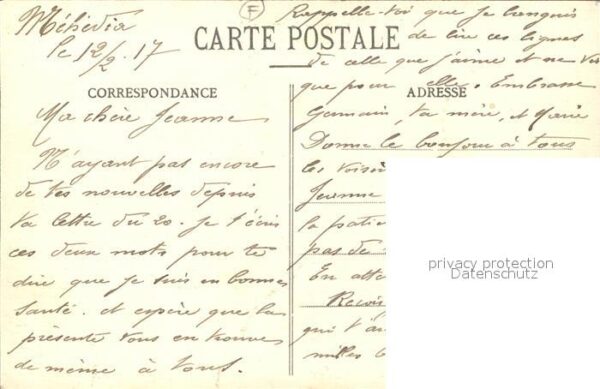 Méhédia
le 12/2.17
F
CARTE POSTALE
CORRESPONDANCE
Ma chère Jeanne
N'ayant pas encore
de tes nouvelles depuis
ta lettre du 20. Je t'écris
ces deux mots pour te
dire que je suis en bonne
santé. et espère que la
présente vous en trouve
de même à tous.
Rappelle-toi que je languis
de lire ces lignes
de celle que j'aime et ne vis
que pour elle. Embrasse
ADRESSE
Germain, ta mère, et Marie
Donne le bonjour à tous
les voisin
Jeanne
la patie
pas de
En atte
Recois
qui t'a
milles b
privacy protection
Datenschutz